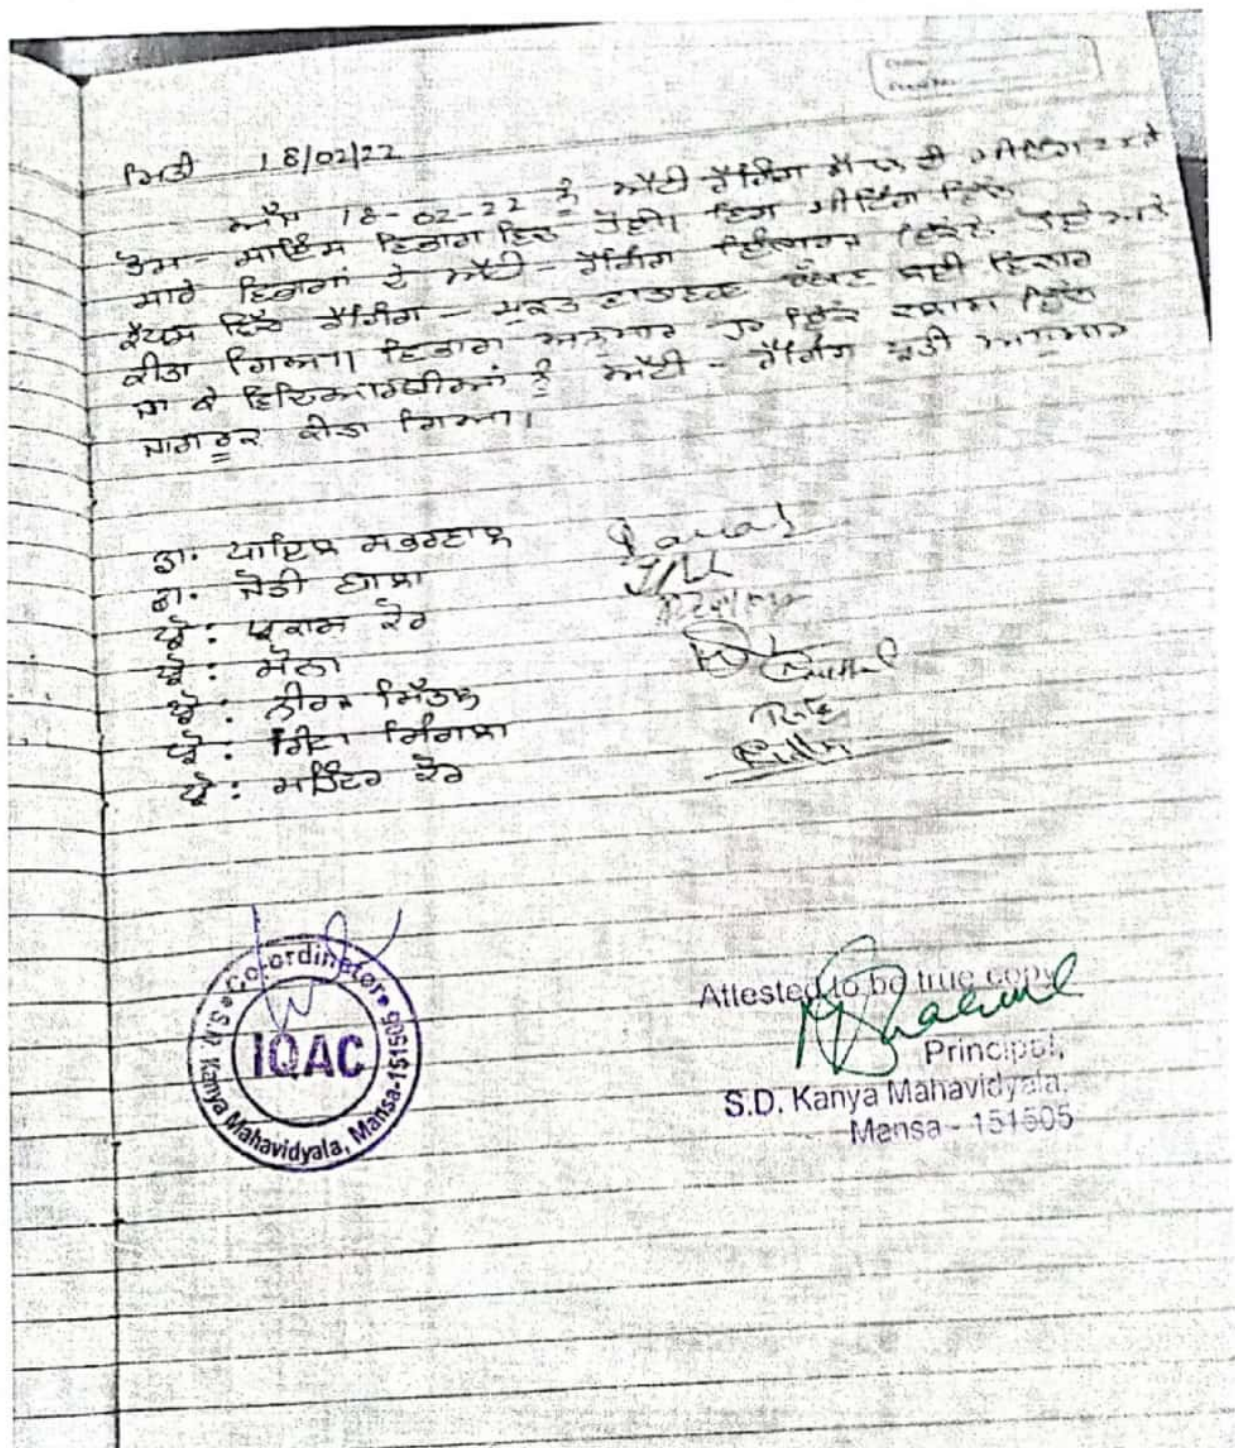 ਮਿਤੀ 18/02/22
ਅੱਜ 18-02-22 ਨੂੰ ਐਂਟੀ ਰੈਗਿੰਗ ਸੈੱਲ ਦੀ ਮੀਟਿੰਗ
ਹੋਮ - ਸਾਇੰਸ ਵਿਭਾਗ ਵਿਚ ਹੋਈ। ਇਸ ਮੀਟਿੰਗ ਵਿੱਚ
ਸਾਰੇ ਵਿਭਾਗਾਂ ਦੇ ਐਂਟੀ - ਰੈਗਿੰਗ ਇੰਚਾਰਜ ਇਕੱਠੇ ਹੋਏ ਅਤੇ
ਕੈਂਪਸ ਵਿੱਚ ਰੈਗਿੰਗ - ਮੁਕਤ ਵਾਤਾਵਰਣ ਰੱਖਣ ਲਈ ਵਿਚਾਰ
ਕੀਤਾ ਗਿਆ। ਵਿਭਾਗ ਅਨੁਸਾਰ ਹਰ ਇੱਕ ਕਲਾਸ ਵਿੱਚ
ਜਾ ਕੇ ਵਿਦਿਆਰਥੀਆਂ ਨੂੰ ਐਂਟੀ - ਰੈਗਿੰਗ ਅਨੁਸਾਰ
ਜਾਗਰੂਕ ਕੀਤਾ ਗਿਆ।
ਡਾ. ਪਾਇਲ
ਡਾ. ਜੋਤੀ ਬਾਲਾ
ਪ੍ਰੋ: ਕੌਰ
ਪ੍ਰੋ: ਮੋਨਾ
ਪ੍ਰੋ: ਨੀਰਜ ਮਿੱਤਲ
ਪ੍ਰੋ: ਸਿੰਗਲਾ
ਪ੍ਰੋ: ਕੌਰ
Co-ordinator
IQAC
S.D. Kanya Mahavidyala, Mansa-151505
Attested to be true copy
Principal,
S.D. Kanya Mahavidyala,
Mansa - 151505